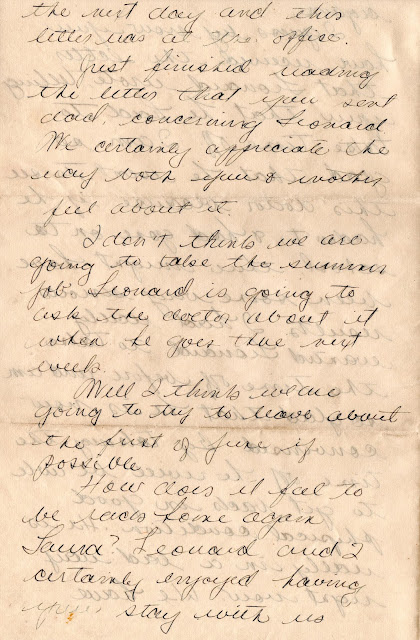 the next day and this
letter was at the office.
Just finished reading
the letter that you sent
dad, concerning Leonard
We certainly appreciate the
way both you & mother
feel about it.
I don't think we are
going to take the summer
job Leonard is going to
ask the doctor about it
when he goes the next
week.
Well I think we are
going to try to leave about
the first of June if
possible
How does it feel to
be back home again
Laura? Leonard and I
certainly enjoyed having
your stay with us